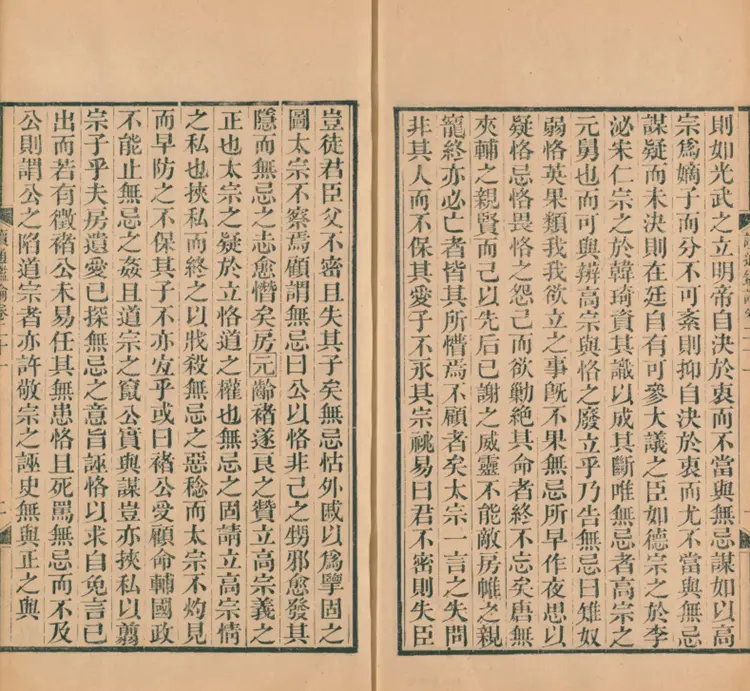 則如光武之立明帝自決於衷而不當與無忌謀如以高
宗爲嫡子而分不可紊則抑自決於衷而尤不當與無忌
謀疑而未決則在廷自有可參大議之臣如德宗之於李
泌宋仁宗之於韓琦資其識以成其斷唯無忌者高宗之
元舅也而可與辨高宗與恪之廢立乎乃告無忌曰雉奴
弱恪英果類我我欲立之事旣不果無忌所早作夜思以
疑恪忌恪畏恪之怨己而欲勦絕其命者終不忘矣唐無
夾輔之親賢而己以先后已謝之威靈不能敵房帷之親
寵終亦必亡者皆其所懵焉不顧者矣太宗一言之失問
非其人而不保其愛子不永其宗祧易曰君不密則失臣
豈徒君臣父不密且失其子矣無忌怙外戚以爲擘固之
圖太宗不察焉顧謂無忌曰公以恪非己之甥邪愈發其
隱而無忌之志愈憯矣房元齡褚遂良之贊立高宗義之
正也太宗之疑於立恪道之權也無忌之固請立高宗情
之私也挾私而終之以戕殺無忌之惡稔而太宗不灼見
而早防之不保其子不亦宜乎或曰褚公受顧命輔國政
不能止無忌之姦且道宗之竄公實與謀豈亦挾私以翦
宗子乎夫房遺愛已探無忌之意旨誣恪以求自免言已
出而若有徵褚公未易任其無患恪且死罵無忌而不及
公則謂公之陷道宗者亦許敬宗之誣史無與正之與
讀通鑑論卷二十一
二